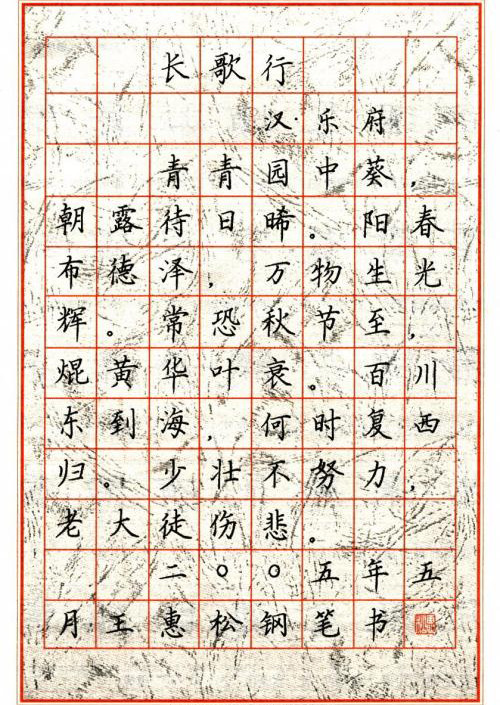 长歌行
汉·乐府
青青园中葵,
朝露待日晞。阳春
布德泽,万物生光
辉。常恐秋节至,
焜黄华叶衰。百川
东到海,何时复西
归。少壮不努力,
老大徒伤悲。
二〇〇五年五
月王惠松钢笔书